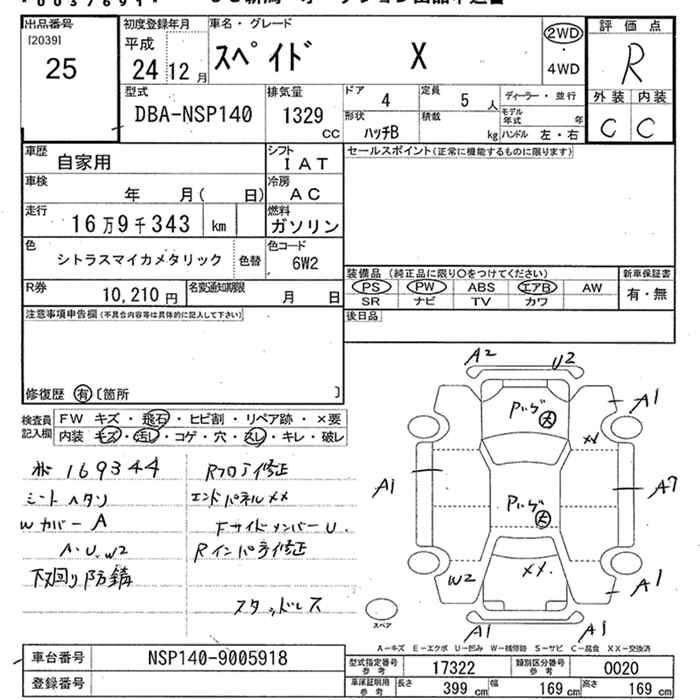 出品番号
[2039]
25
初度登録年月
平成
24 12 月
車名・グレード
スペイド X
2WD
・
4WD
評価点
R
外装 内装
C C
型式
DBA-NSP140
排気量
1329
CC
ドア
4
定員
5 人
ディーラー・並行
形状
ハッチB
積載
kg
モデル年式 年
ハンドル 左・右
車歴
自家用
シフト
IAT
セールスポイント(正常に機能するものに限ります)
車検
年 月( 日)
冷房
AC
走行
16万9千343 km
燃料
ガソリン
色
シトラスマイカメタリック
色替
色コード
6W2
装備品(純正品に限り○をつけてください)
新車保証書
PS PW ABS エアB AW
SR ナビ TV カワ
有・無
R券
10,210 円
名変通知期限
月 日
注意事項申告欄(不具合内容等は具体的に記入して下さい)
後日品
修復歴 有 〔箇所 〕
検査員記入欄
FW キズ・飛石・ヒビ割・リペア跡・×要
内装 キズ・汚レ・コゲ・穴・スレ・キレ・破レ
169344
シートヘタリ
Wカバー A
A・U・W2
下回り防錆
Rフロア修正
エンドパネルXX
FサイドメンバーU
Rインパネ修正
スタッドレス
A2 U2
A1
Pいジ 大
XX
A1
A7
Pいジ 大
W2
XX
A1
A1 A1
スペア
A-キズ E-エクボ U-凹み W-補修跡 S-サビ C-腐食 XX-交換済
車台番号
NSP140-9005918
登録番号
型式指定番号 参考
17322
類別区分番号 参考
0020
車庫証明用 参考
長さ 399 cm 幅 169 cm 高さ 169 cm